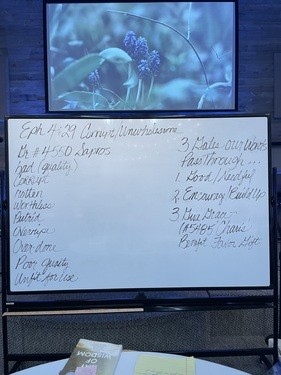 Eph 4:29 Corrupt/Unwholesome
Gr #4550 Sapros
bad (quality)
Corrupt
rotten
worthless
Putrid
Overripe
Over done
Poor quality
Unfit for use
3 Gates our Words
Pass Through...
1. Good/Needful
2. Encourag/Build Up
3. Give Grace
(#5485) Charis
Benefit Favor Gift
WISDOM
OF